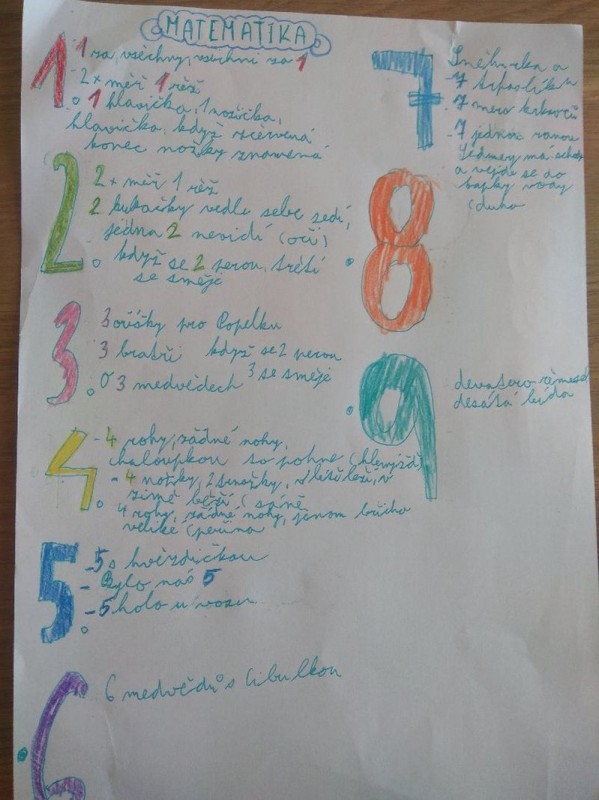 MATEMATIKA
1
1 za všechny, všichni za 1
2x měř 1 řež
1 hlavička, 1 nožička,
hlavička, když
konec nožky znamená
2
2x měř 1 řež
2 kukačky vedle sebe sedí,
jedna 2 nevidí (oči)
když se 2 perou, třetí
se směje
3
3 oříšky pro Popelku
3 bratři když se 2 perou
3 se směje
O 3 medvědech
4
- 4 rohy, žádné nohy,
chaloupkou to pohne (hlemýžď)
- 4 nožky, 2 v létě leží, v
zimě běží (sáně
4 rohy, žádné nohy, jenom břicho
veliké (peřina
5
- 5 s hvězdičkou
- Bylo nás 5
- 5 holo u vozu
6
6 medvědů s Cibulkou
7
Sněhurka a
7 trpaslíků
- 7 mero krkavců
- 7 jednou ranou
Sedmery má schody
a vejde se do
kapky vody
(duha
8
9
devatero řemesel
desátá bída